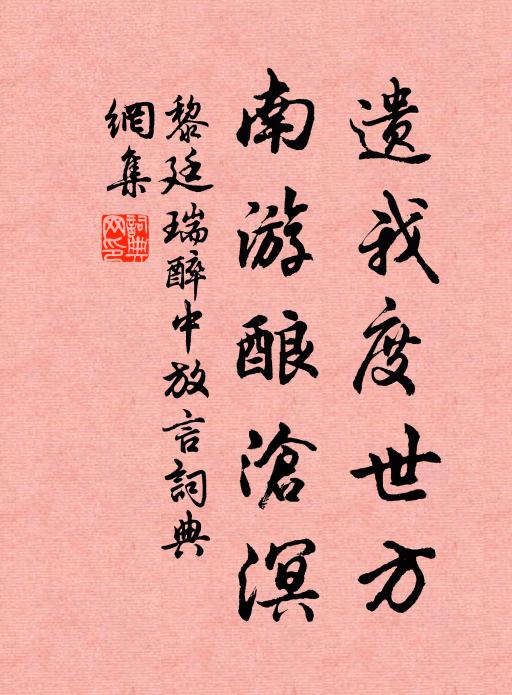 遗我度世方
南游酿滄溟
黎廷瑞醉中放言詞典
網集
詞典
网印